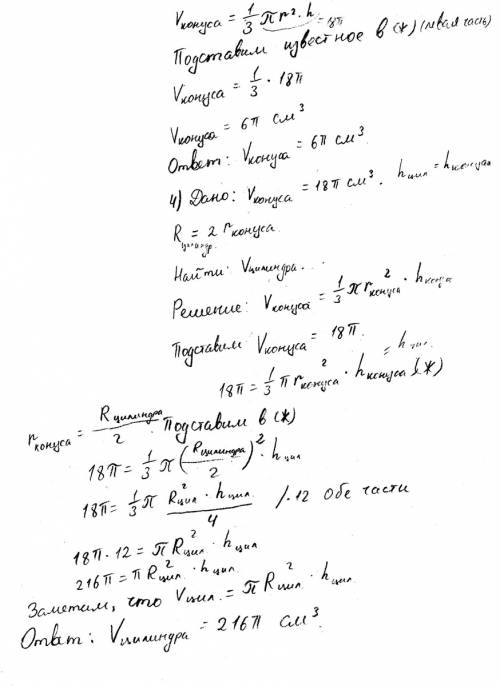 Vконуса = 1/3 π r² · h = 18π
Подставим известное в (*) (левая часть)
Vконуса = 1/3 · 18π
Vконуса = 6π см³
Ответ: Vконуса = 6π см³.
4) Дано: Vконуса = 18π см³. hцил = hконуса
Rцилиндр. = 2 rконуса.
Найти: Vцилиндра.
Решение: Vконуса = 1/3 π rконуса² · hконуса
Подставим Vконуса = 18π.
18π = 1/3 π rконуса² · hконуса (*) = hцил
rконуса = Rцилиндра/2. Подставим в (*)
18π = 1/3 π (Rцилиндра/2)² · hцил
18π = 1/3 π Rцил² · hцил/4 / · 12 обе части
18π · 12 = π Rцил² · hцил
216π = π Rцил² · hцил.
Заметим, что Vцил. = π Rцил² · hцил.
Ответ: Vцилиндра = 216π см³.